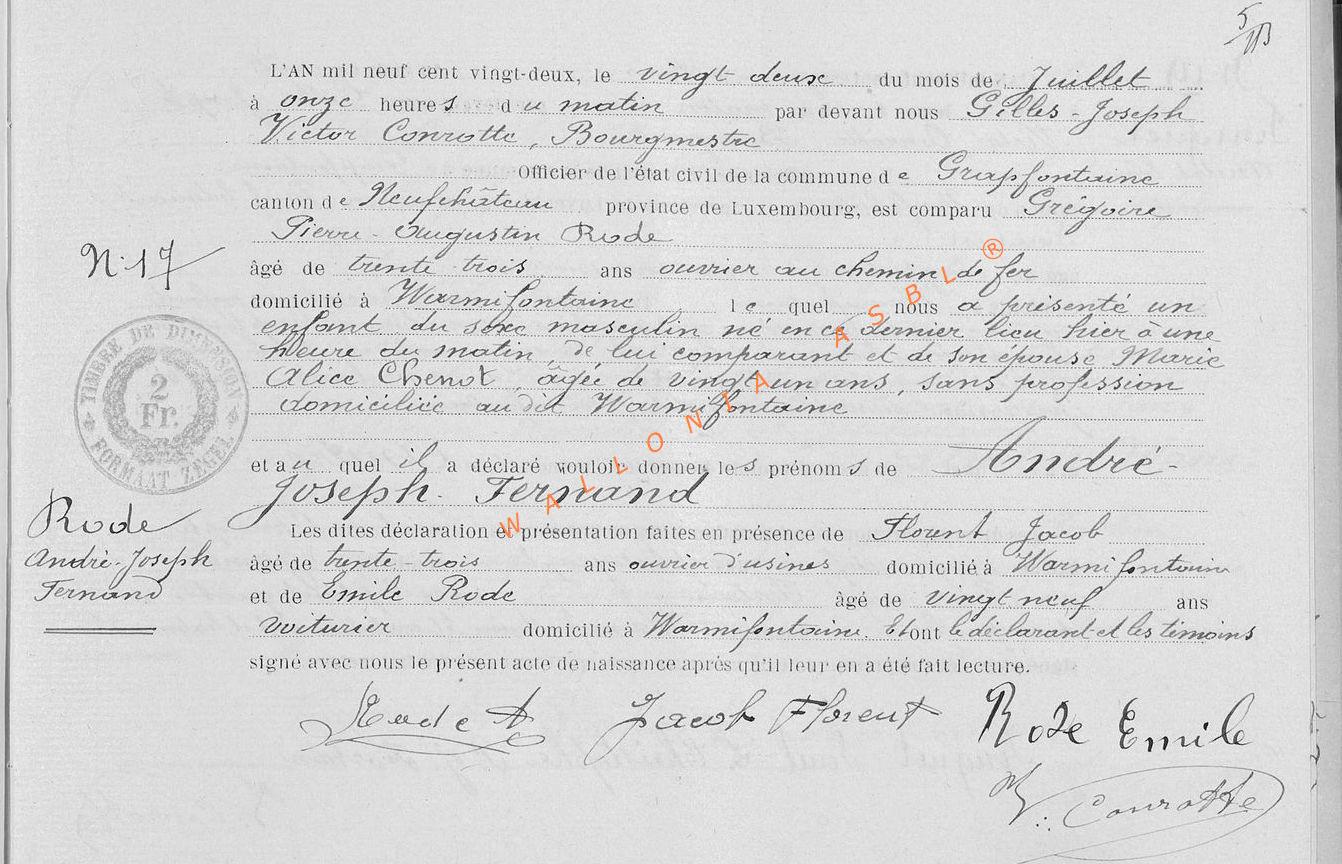 5/113
L'AN mil neuf cent vingt-deux, le vingt deux du mois de Juillet
à onze heures du matin par devant nous Gilles-Joseph
Victor Conrotte, Bourgmestre
Officier de l'état civil de la commune de Grapfontaine
canton de Neufchâteau province de Luxembourg, est comparu Grégoire
Pierre Augustin Rode
N° 17
âgé de trente trois ans ouvrier au chemin de fer
domicilié à Warmifontaine le quel nous a présenté un
enfant du sexe masculin né en ce dernier lieu hier à une
heure du matin, de lui comparant et de son épouse Marie
Alice Chenot, âgée de vingt un ans, sans profession
domiciliée au dit Warmifontaine
TIMBRE DE DIMENSION
2
Fr.
FORMAAT ZEGEL
et au quel il a déclaré vouloir donner les prénoms de André-
Joseph-Fernand
Rode
André-Joseph
Fernand
Les dites déclaration et présentation faites en présence de Florent Jacob
âgé de trente-trois ans ouvrier d'usines domicilié à Warmifontaine
et de Emile Rode âgé de vingt neuf ans
voiturier domicilié à Warmifontaine. Et ont le déclarant et les témoins
signé avec nous le présent acte de naissance après qu'il leur en a été fait lecture.
Rode A Jacob Florent Rode Emile
V. Conrotte
WALLONIA ASBL ®